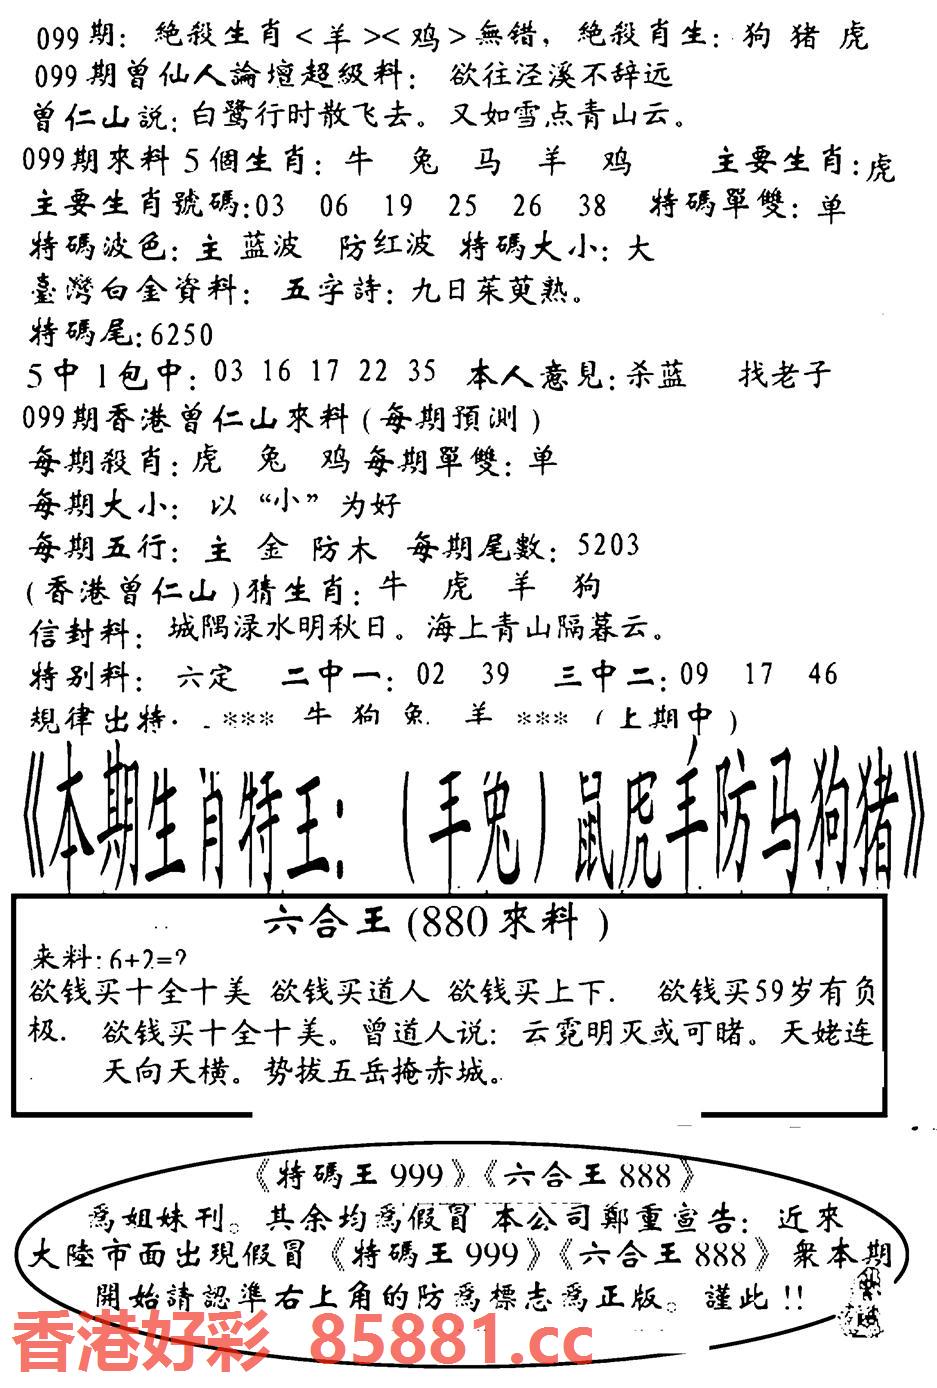 099期：絶殺生肖<羊><鸡>無错，絶殺肖生：狗 猪 虎
099期曾仙人論壇超級料：欲往泾溪不辞远
曾仁山説：白鹭行时散飞去。又如雪点青山云。
099期來料5個生肖：牛 兔 马 羊 鸡 主要生肖：虎
主要生肖號碼：03 06 19 25 26 38 特碼單雙：单
特碼波色：主 蓝波 防红波 特碼大小：大
臺灣白金資料：五字詩：九日茱萸熟。
特碼尾：6250
5中1包中：03 16 17 22 35 本人意見：杀蓝 找老子
099期香港曾仁山來料(每期預測)
每期殺肖：虎 兔 鸡 每期單雙：单
每期大小：以“小”为好
每期五行：主 金 防木 每期尾數：5203
(香港曾仁山)猜生肖：牛 虎 羊 狗
信封料：城隅渌水明秋日。海上青山隔暮云。
特别料：六定 二中一：02 39 三中二：09 17 46
規律出特. *** 牛 狗 兔 羊 ***（上期中）
《本期生肖特王：（羊兔）鼠虎羊防马狗猪》
六合王(880來料)
来料:6+2=?
欲钱买十全十美 欲钱买道人 欲钱买上下. 欲钱买59岁有负
极. 欲钱买十全十美。曾道人说：云霓明灭或可睹。天姥连
天向天横。势拔五岳掩赤城。
《特碼王999》《六合王888》
爲姐妹刊。其余均爲假冒 本公司鄭重宣告：近來
大陸市面出現假冒《特碼王999》《六合王888》衆本期
開始請認準右上角的防爲標志爲正版。謹此!!
香港好彩 85881.cc